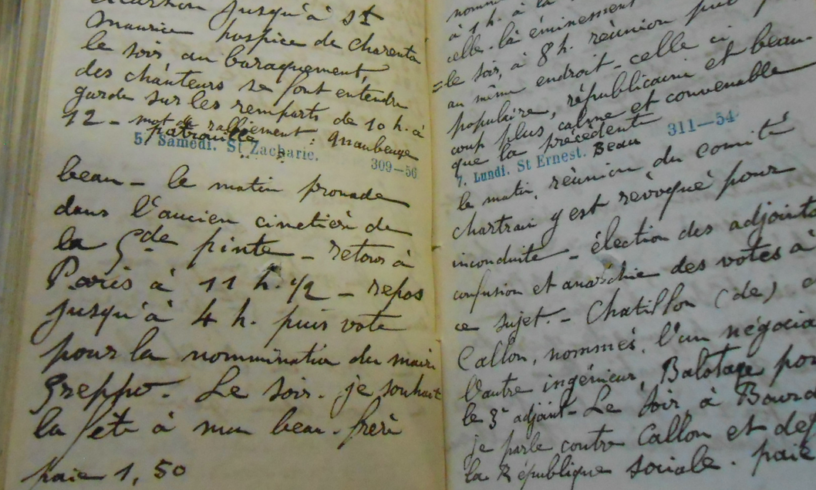 jusqu'à St
Maurice hospice de Charenton
le soir, au baraquement,
des chanteurs se font entendre
garde sur les remparts de 10 h. à
12 - mot de ralliement: Maubeuge
patrouille
5. Samedi. St Zacharie. 309-56
beau - le matin promade
dans l'ancien cimetière de
la Gde pinte - retour à
Paris à 11 h. 1/2 - repos
jusqu'à 4 h. puis vote
pour la nommination du maire
Greppo. Le soir. je souhait
la fête à mon beau-frère
paie 1,50
à 1 h. à la
celle-là éminement
= le soir, à 8 h. réunion
au même endroit - celle ci
populaire, républicaine et beau-
coup plus calme et convenable
que la précédente
7. Lundi. St Ernest. Beau 311-54
le matin, réunion du comité
chartrain y est révoqué pour
inconduite - élection des adjoints
confusion et anarchie des votes à
ce sujet. - Chatillon (de) e
Callon, nommés, l'un négocia
l'autre ingénieur, Balotage pou
le 3e adjoint - Le soir, à
je parle contre Callon et def
la République sociale. paie